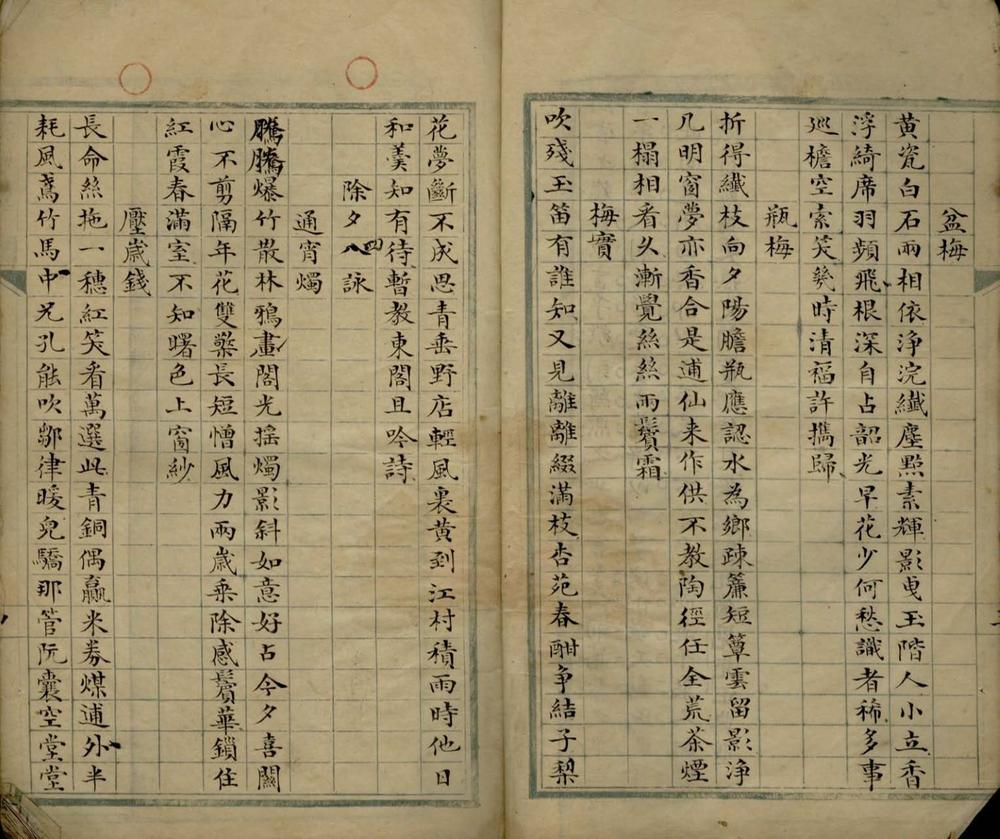 盆梅
黄瓷白石兩相依淨浣纖塵點素輝影曳玉階人小立香
浮綺席羽頻飛根深自占韶光早花少何愁識者稀多事
巡檐空索笑幾時清福許攜歸
瓶梅
折得纖枝向夕陽膽瓶應認水為鄉疎簾短簟雲留影淨
几明窗夢亦香合是逋仙来作供不教陶徑任全荒茶煙
一榻相看久漸覺絲絲兩鬢霜
梅實
吹殘玉笛有誰知又見離離綴滿枝杏苑春酣争結子梨
花夢斷不成思青垂野店輕風裏黄到江村積雨時他日
和羹知有待暫教東閣且吟詩
除夕八四詠
通宵燭
騰騰爆竹散林鴉畫閣光摇燭影斜如意好占今夕喜關
心不剪隔年花雙檠長短憎風力兩歲乘除感鬢華鎖住
紅霞春滿室不知曙色上窗紗
壓歲錢
長命絲拖一穗紅笑看萬選此青銅偶贏米券煤逋外半
耗風鳶竹馬中兄孔能吹鄒律暖兒驕那管阮囊空堂堂